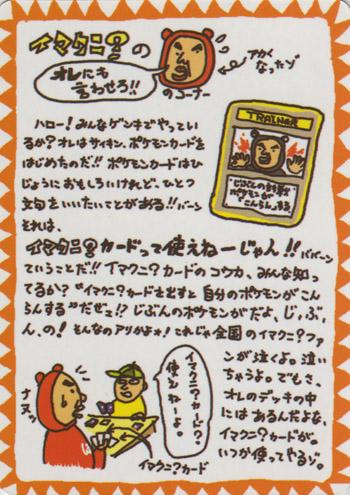 イマクニ?の
オレにも
言わせろ!!
のコーナー
アカく
なったゾ
ハロー!みんなゲンキでやってい
るか?オレはサイキン、ポケモンカードを
はじめたのだ!!ポケモンカードはひ
じょうにおもしろいけれど、ひとつ
文句をいいたいことがある!!バーン
それは、
TRAINER
じぶんの対戦
ポケモンが
こんらんする。
イマクニ?カードって使えねーじゃん!!ババーン
ていうことだ!!イマクニ?カードのコウカ、みんな知っ
てるか?“イマクニ?カードを出すと自分のポケモンがこん
らんする”だぜェ!?じぶんのポケモンがだよ、じ、ぶ、
ん、の!そんなのアリかよォ!これじゃ全国のイマクニ?ファ
ンが泣くよ。泣い
ちゃうよ。でもさ、
オレのデッキの中
にはあるんだよな、
イマクニ?カードが。
いつか使ってやるゾ。
イマクニ?カード?
使えねーよ。
ナヌッ
イマクニ?カード